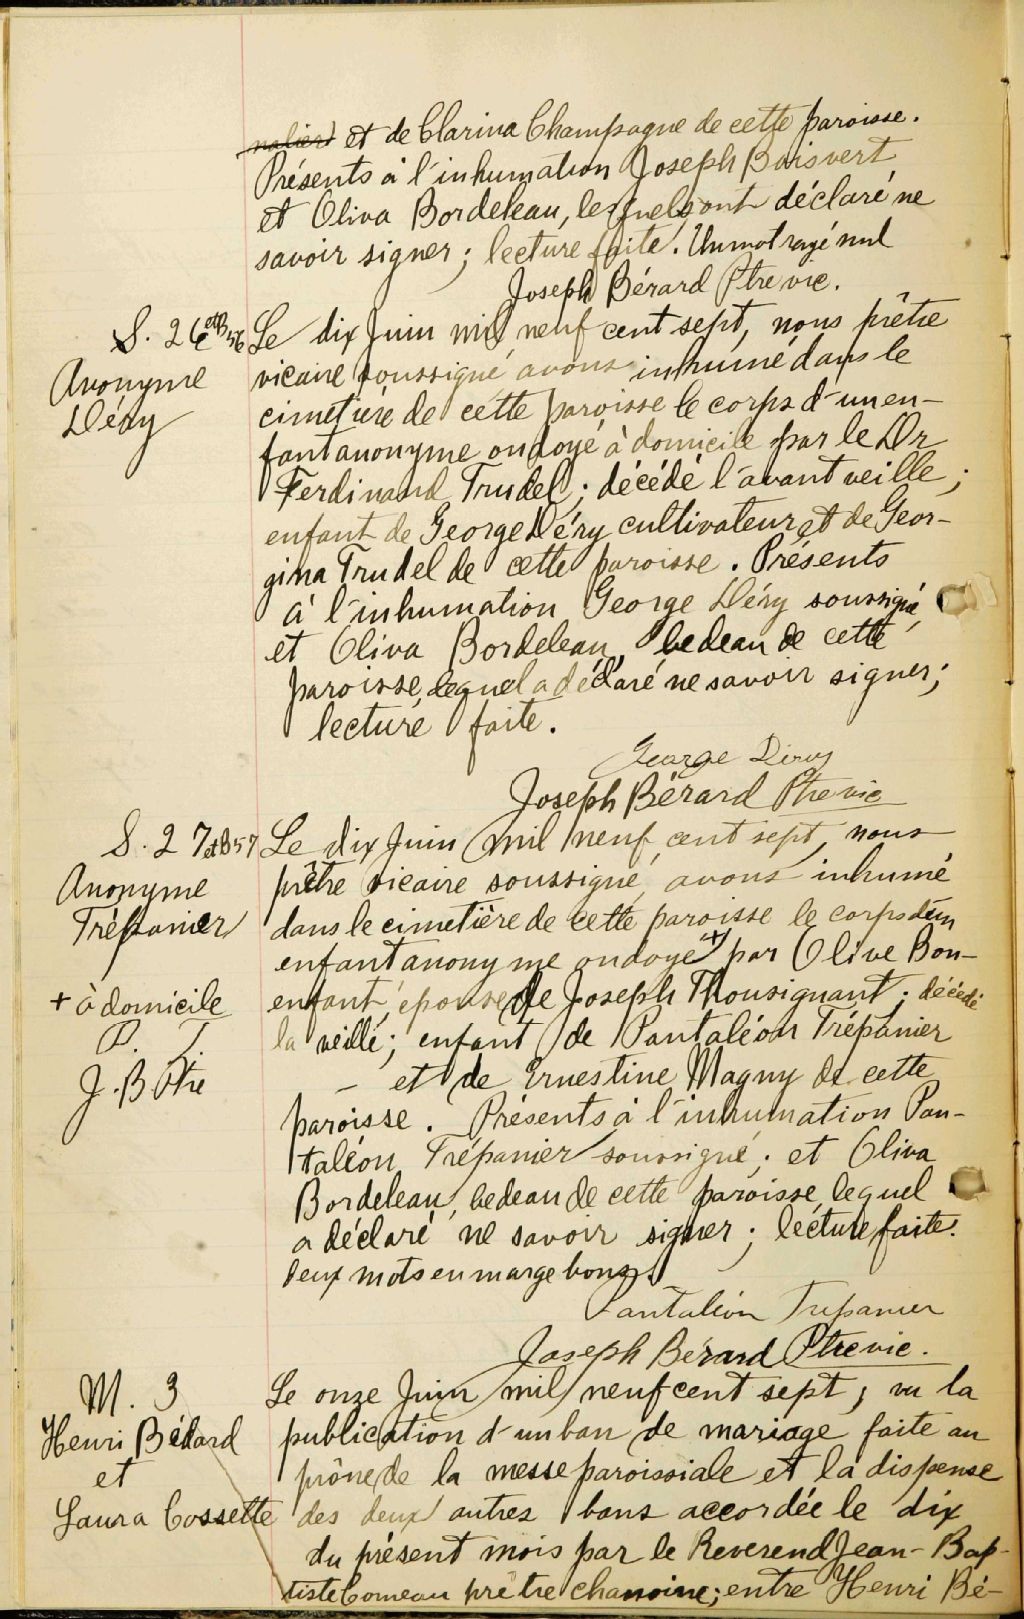 nalier et de Clarina Champagne de cette paroisse.
Présents à l'inhumation Joseph Boisvert
et Oliva Bordeleau, lesquels ont déclaré ne
savoir signer; lecture faite. Un mot rayé nul
Joseph Bérard Ptre vic.
S. 26 et B 56
Anonyme
Déry
Le dix Juin mil neuf cent sept, nous prêtre
vicaire soussigné avons inhumé dans le
cimetière de cette paroisse le corps d'un en-
fant anonyme ondoyé à domicile par le Dr
Ferdinand Trudel; décédé l'avant veille;
enfant de George Déry cultivateur et de Geor-
gina Trudel de cette paroisse. Présents
à l'inhumation George Déry soussigné,
et Oliva Bordeleau, bedeau de cette
paroisse, lequel a déclaré ne savoir signer;
lecture faite.
George Dery
Joseph Bérard Ptre vic
S. 27 et B 57
Anonyme
Trépanier
+ à domicile
P. T
J. B Ptre
Le dix Juin mil neuf cent sept, nous
prêtre vicaire soussigné, avons inhumé
dans le cimetière de cette paroisse le corps d'un
enfant anonyme ondoyé + par Olive Bon-
enfant, épouse de Joseph Thousignant; décédé
la veille; enfant de Pantaléon Trépanier
et de Ernestine Magny de cette
paroisse. Présents à l'inhumation Pan-
taléon Trépanier soussigné; et Oliva
Bordeleau, bedeau de cette paroisse, lequel
a déclaré ne savoir signer; lecture faite.
deux mots en marge bons.
Pantaléon Trepanier
Joseph Bérard Ptre vic.
M. 3
Henri Bédard
et
Laura Cossette
Le onze Juin mil neuf cent sept; vu la
publication d'un ban de mariage faite au
prône de la messe paroissiale et la dispense
des deux autres bans accordée le dix
du présent mois par le Reverend Jean-Bap-
tiste Comeau prêtre chanoine; entre Henri Bé-